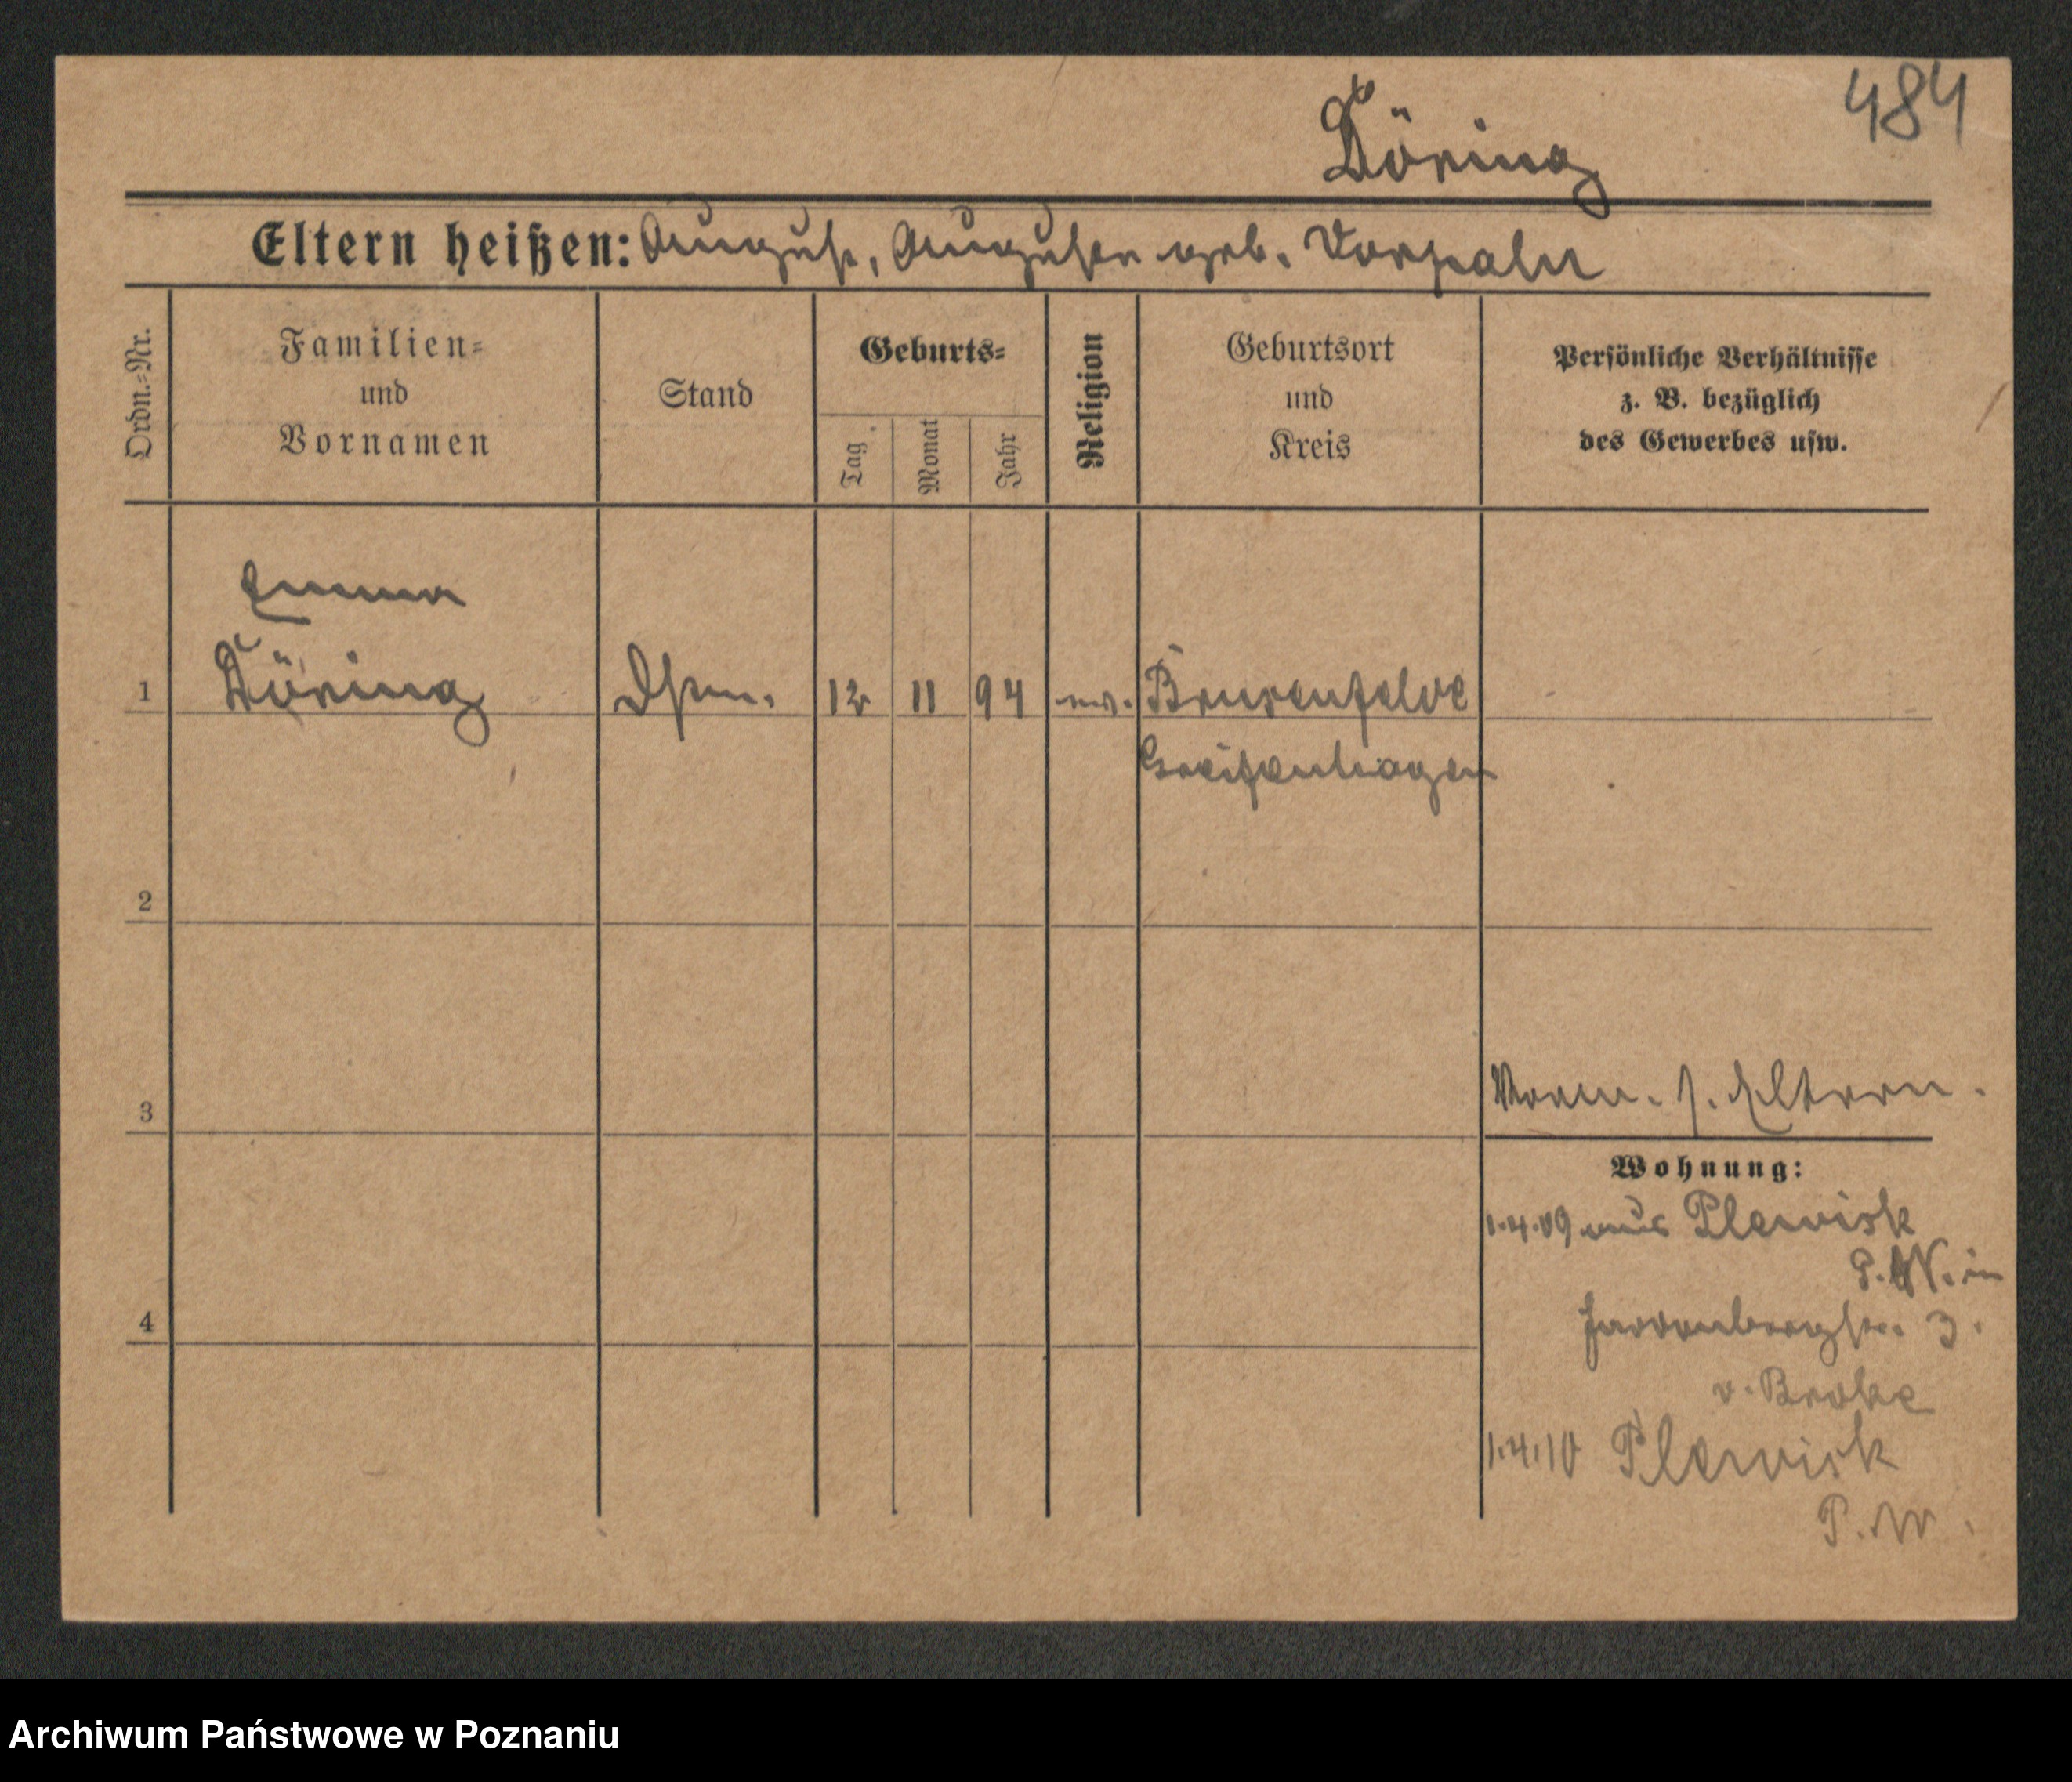 484
Döring
Eltern heißen: August, Auguste geb. Vorpahl
Ordn.=Nr.
Familien=
und
Vornamen
Stand
Geburts=
Tag
Monat
Jahr
Religion
Geburtsort
und
Kreis
Persönliche Verhältnisse
z. B. bezüglich
des Gewerbes usw.
Emma
1 Döring 12 11 94 ev. Brusenfelde
Greifenhagen
2
3
Vorm. s. Eltern.
Wohnung:
1.4.09 aus Plewisk
P. W. in
4
3.
v. Broke
1.4.10 Plewisk
P. W.
Archiwum Państwowe w Poznaniu